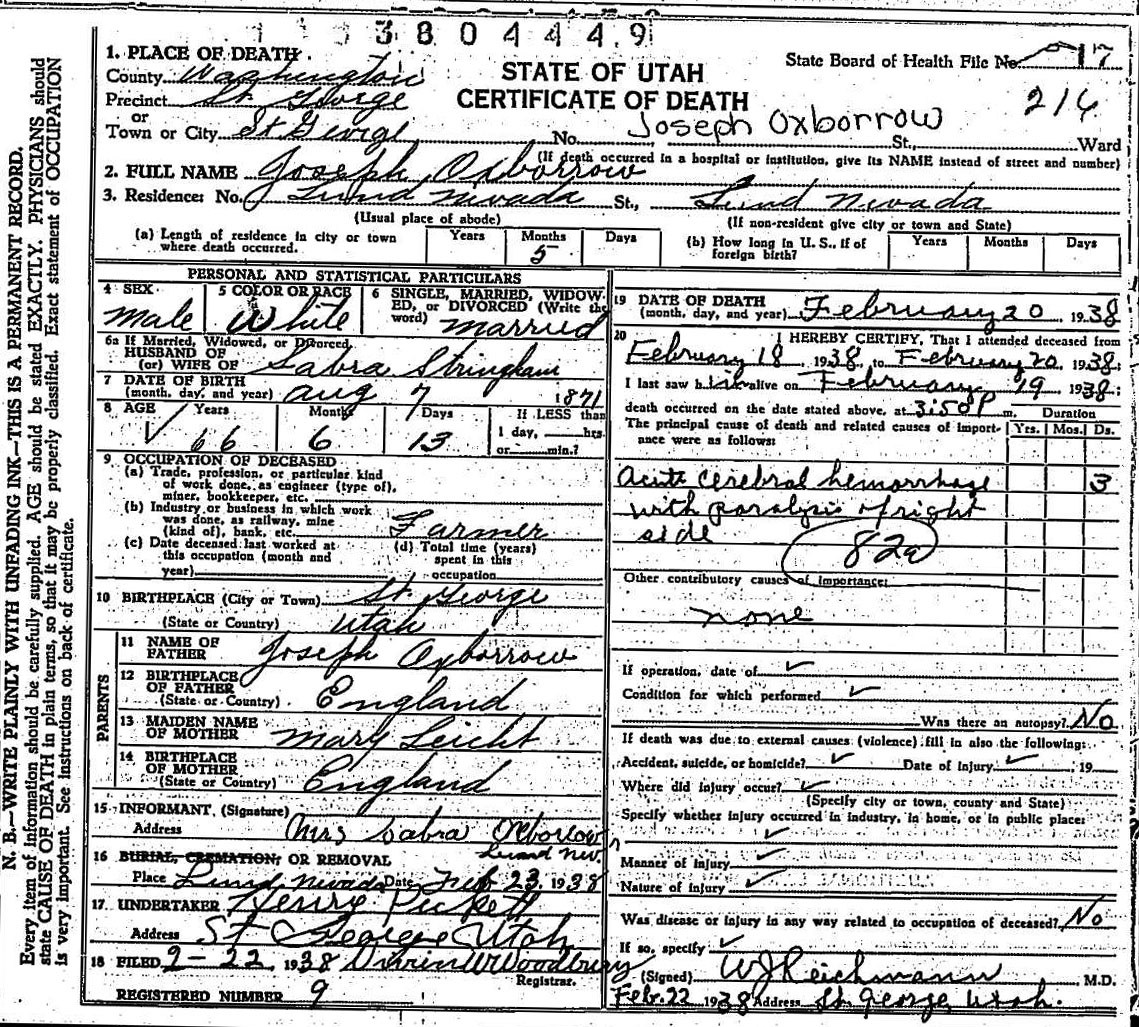 3804449
1. PLACE OF DEATH
County Washington
STATE OF UTAH
State Board of Health File No. 17
Precinct St George
CERTIFICATE OF DEATH
216
or
Town or City St George No. Joseph Oxborrow St., Ward
(If death occurred in a hospital or institution, give its NAME instead of street and number)
2. FULL NAME Joseph Oxborrow
3. Residence: No. Lund Nevada St., Lund Nevada
(Usual place of abode) (If non-resident give city or town and State)
(a) Length of residence in city or town where death occurred. Years Months 5 Days
(b) How long in U. S., if of foreign birth? Years Months Days
PERSONAL AND STATISTICAL PARTICULARS
4 SEX male
5 COLOR OR RACE White
6 SINGLE, MARRIED, WIDOWED, or DIVORCED (Write the word) married
6a If Married, Widowed, or Divorced
HUSBAND OF
(or) WIFE OF Sabra Stringham
7 DATE OF BIRTH
(month, day, and year) Aug 7 1871
8 AGE Years 66 Months 6 Days 13
If LESS than
1 day, hrs.
or min.?
9 OCCUPATION OF DECEASED
(a) Trade, profession, or particular kind
of work done, as engineer (type of),
miner, bookkeeper, etc.
(b) Industry or business in which work
was done, as railway, mine
(kind of), bank, etc. Farmer
(c) Date deceased last worked at
this occupation (month and
year)
(d) Total time (years)
spent in this
occupation
10 BIRTHPLACE (City or Town) St George
(State or Country) Utah
PARENTS
11 NAME OF
FATHER Joseph Oxborrow
12 BIRTHPLACE
OF FATHER
(State or Country) England
13 MAIDEN NAME
OF MOTHER Mary Leicht
14 BIRTHPLACE
OF MOTHER
(State or Country) England
15 INFORMANT, (Signature)
Address Mrs Sabra Oxborrow
Lund Nev.
16 BURIAL, CREMATION, OR REMOVAL
Place Lund Nevada Date Feb 23, 1938
17 UNDERTAKER Henry Pickett
Address St George Utah
18 FILED 2-22 1938 Woodbury
Registrar.
REGISTERED NUMBER 9
19 DATE OF DEATH
(month, day, and year) February 20 1938
20 I HEREBY CERTIFY, That I attended deceased from
February 18 1938, to February 20 1938;
I last saw him alive on February 19 1938;
death occurred on the date stated above, at 3:50 P m. Duration
The principal cause of death and related causes of importance were as follows: Yrs. Mos. Ds.
Acute cerebral hemorrhage 3
with paralysis of right
side
82a
Other contributory causes of importance:
none
If operation, date of
Condition for which performed
Was there an autopsy? No
If death was due to external causes (violence) fill in also the following:
Accident, suicide, or homicide? Date of injury , 19
Where did injury occur?
(Specify city or town, county and State)
Specify whether injury occurred in industry, in home, or in public place:
Manner of injury
Nature of injury
Was disease or injury in any way related to occupation of deceased? No
If so, specify
(Signed) W J Reichmann M.D.
Feb. 22 1938 Address St. George, Utah.
N. B.—WRITE PLAINLY WITH UNFADING INK—THIS IS A PERMANENT RECORD.
Every item of information should be carefully supplied. AGE should be stated EXACTLY. PHYSICIANS should
state CAUSE OF DEATH in plain terms, so that it may be properly classified. Exact statement of OCCUPATION
is very important. See instructions on back of certificate.